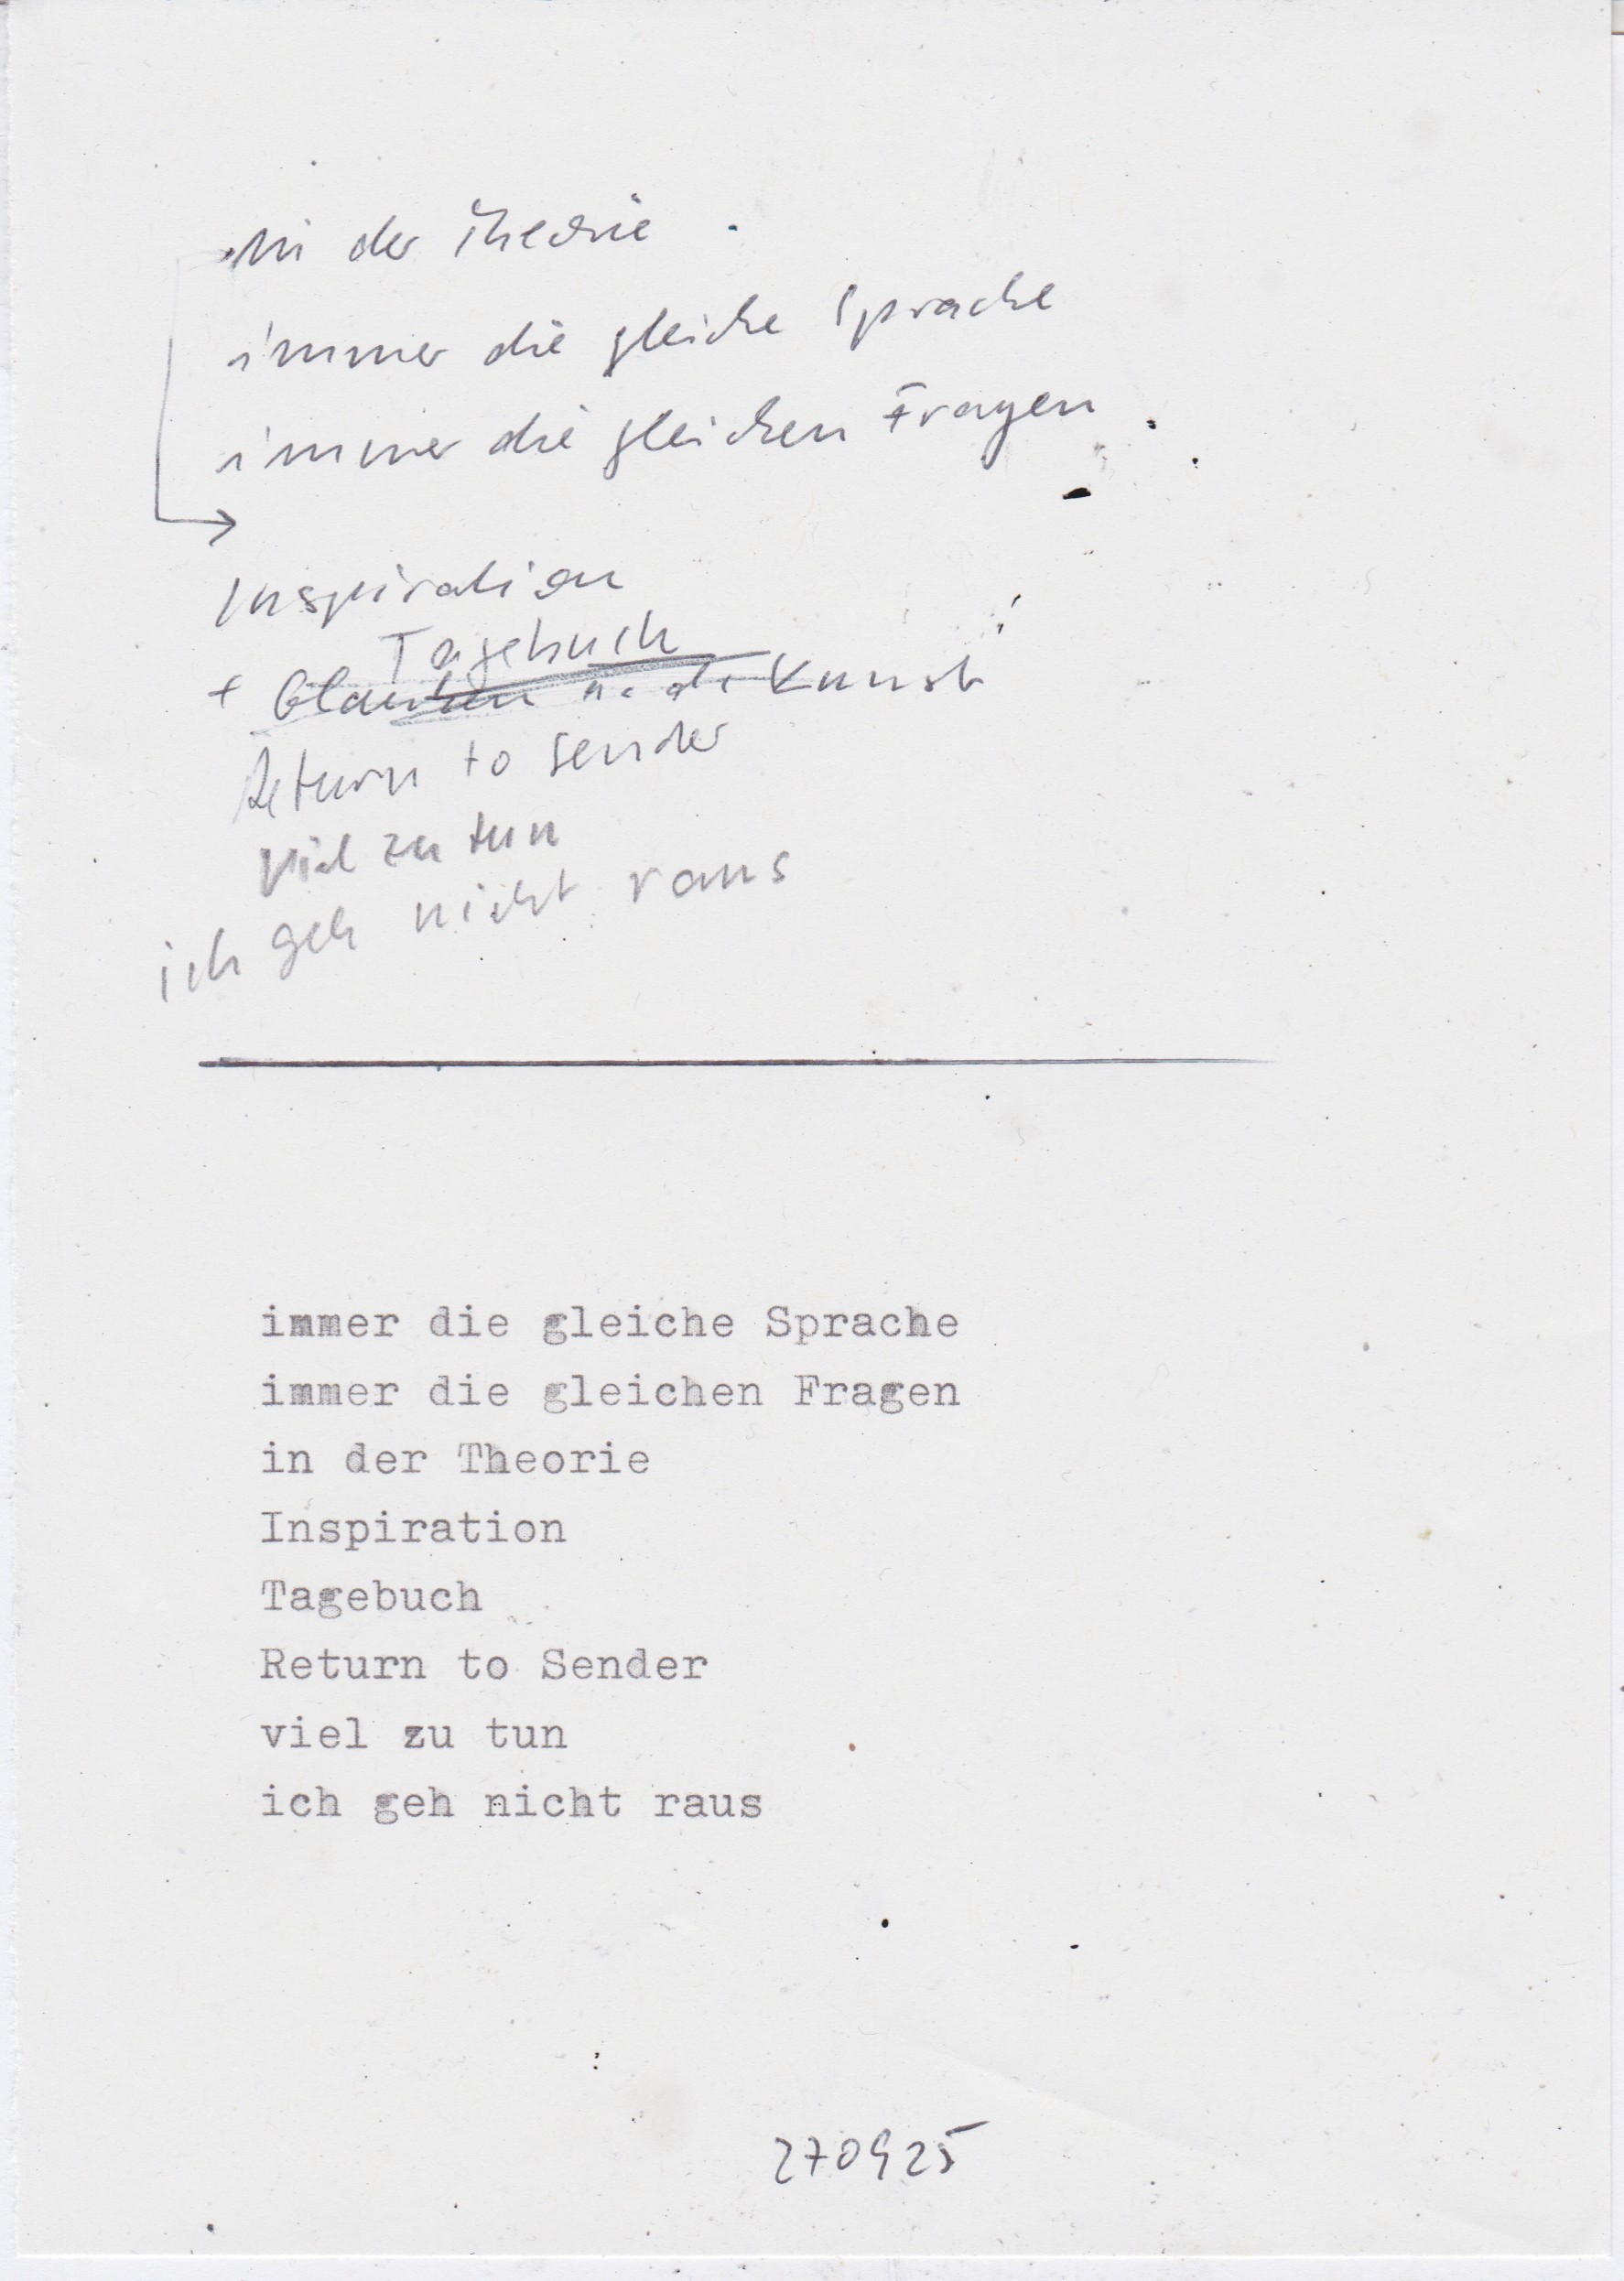 in der Theorie
immer die gleiche Sprache
immer die gleichen Fragen
Inspiration
Tagebuch
+ Glauben Kunst
Return to sender
viel zu tun
ich geh nicht raus
immer die gleiche Sprache
immer die gleichen Fragen
in der Theorie
Inspiration
Tagebuch
Return to Sender
viel zu tun
ich geh nicht raus
270925